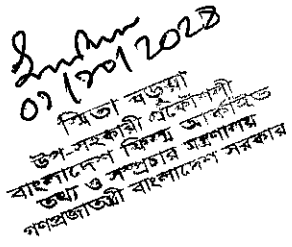 ০১/১০/২০২৪
স্মিতা বড়ুয়া
উপ-সহকারী প্রকৌশলী
বাংলাদেশ ফিল্ম আর্কাইভ
তথ্য ও সম্প্রচার মন্ত্রণালয়
গণপ্রজাতন্ত্রী বাংলাদেশ সরকার